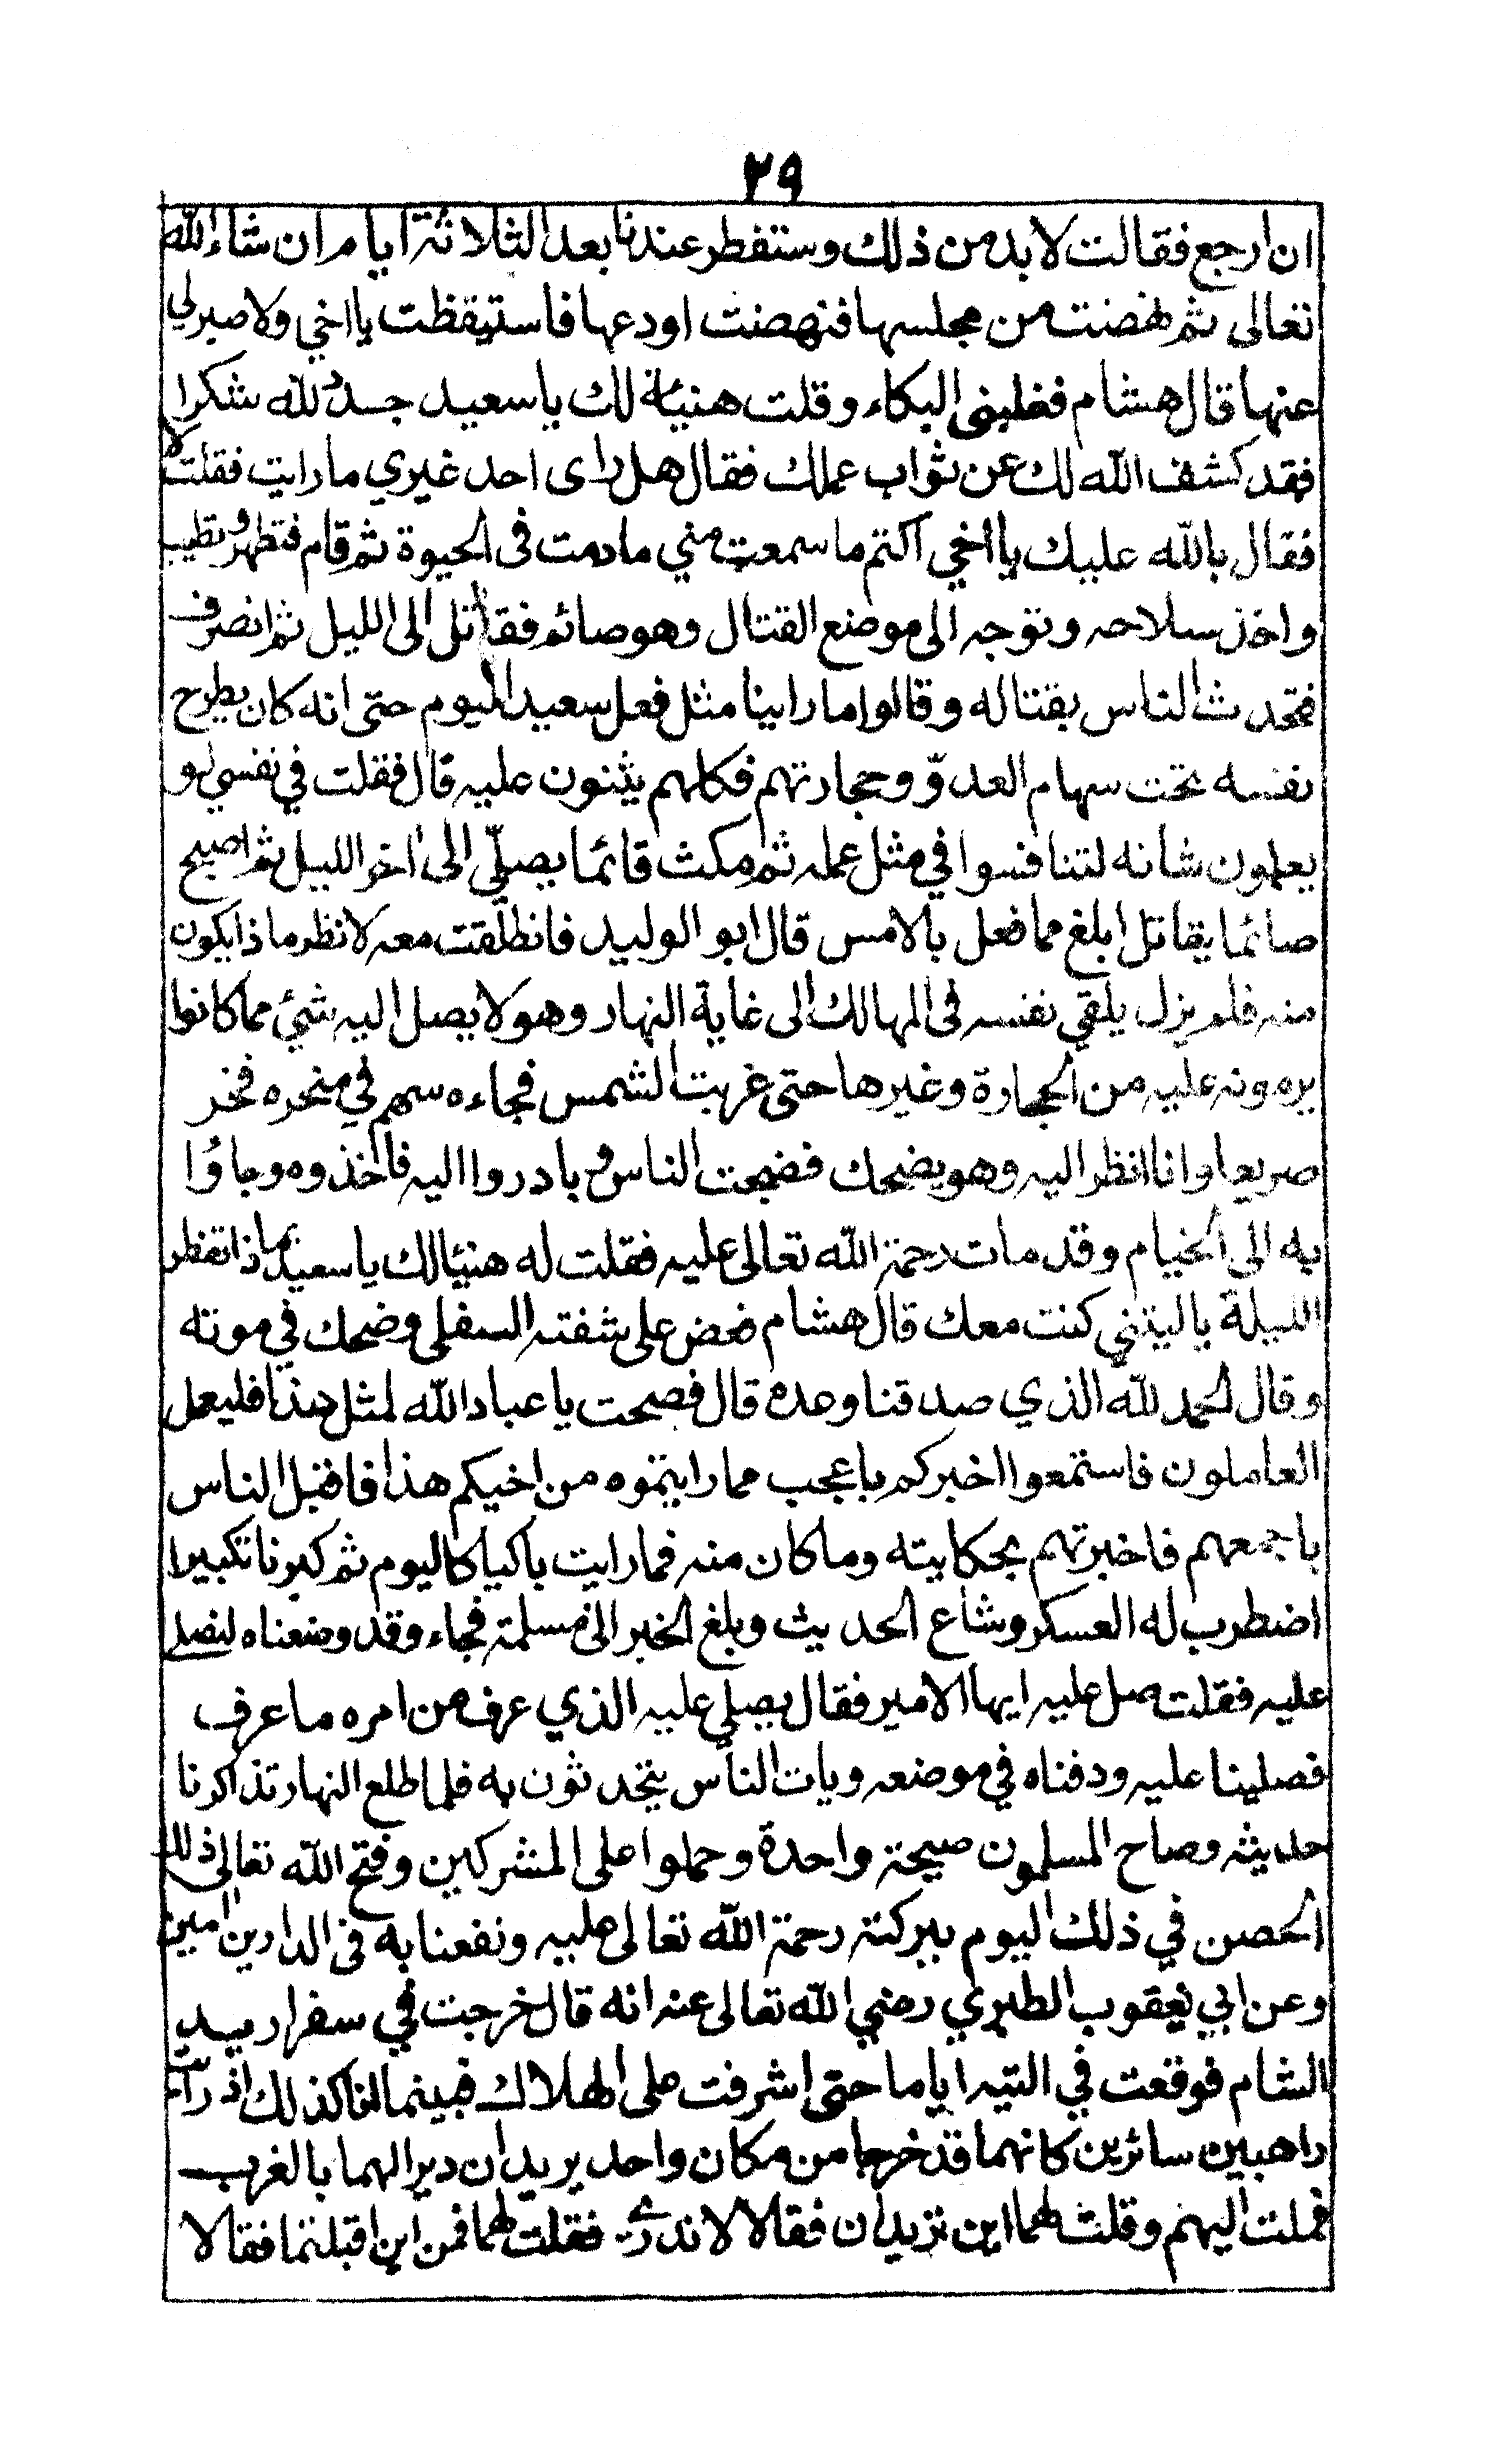 ٢٩
ان ارجع فقالت لا بد من ذلك وستفطر عندنا بعد الثلاثة ايام ان شاء الله
تعالى ثم نهضت من مجلسها فنهضت اودعها فاستيقظت يا اخي ولا صبر لي
عنها قال هشام فغلبني البكاء وقلت هنيئا لك يا سعيد جدد لله شكرا
فقد كشف الله لك عن ثواب عملك فقال هل راى احد غيري ما رايت فقلت لا
فقال بالله عليك يا اخي اكتم ما سمعت مني ما دمت فى الحيوة ثم قام فتطهر وتطيب
واخذ سلاحه وتوجه الى موضع القتال وهو صائم فقاتل الى الليل ثم انصرف
فتحدث الناس بقتاله وقالوا ما راينا مثل فعل سعيد اليوم حتى انه كان يطرح
نفسه تحت سهام العدوّ وحجارتهم فكلهم يثنون عليه قال فقلت في نفسي لو
يعلمون شانه لتنافسوا في مثل عمله ثم مكث قائما يصلّي الى اخر الليل ثم اصبح
صائما يقاتل ابلغ مما فعل بالامس قال ابو الوليد فانطلقت معه لانظر ماذا يكون
منه فلم يزل يلقي نفسه فى المهالك الى غاية النهار وهو لا يصل اليه شئ مما كانوا
يرمونه عليه من الحجارة وغيرها حتى غربت الشمس فجاءه سهم في منحره فخر
صريعا وانا انظر اليه وهو يضحك فضجت الناس وبادروا اليه فاخذوه وجاؤا
به الى الخيام وقد مات رحمة الله تعالى عليه فقلت له هنيئا لك يا سعيد بماذا تفطر
الليلة يا ليتني كنت معك قال هشام فعض على شفته السفلى وضحك في موته
وقال الحمد لله الذي صدقنا وعده قال فصحت يا عباد الله لمثل هذا فليعمل
العاملون فاستمعوا اخبركم باعجب مما رايتموه من اخيكم هذا فاقبل الناس
باجمعهم فاخبرتهم بحكايته وما كان منه فما رايت باكيا كاليوم ثم كبرنا تكبيرا
اضطرب له العسكر وشاع الحديث وبلغ الخبر الى مسلمة فجاء وقد وضعناه لنصلى
عليه فقلت صل عليه ايها الامير فقال يصلي عليه الذي عرف من امره ما عرف
فصلينا عليه ودفناه في موضعه وبات الناس يتحدثون به فلما طلع النهار تذاكرنا
حديثه وصاح المسلمون صيحة واحدة وحملوا على المشركين وفتح الله تعالى ذلك
الحصن في ذلك اليوم ببركته رحمة الله تعالى عليه ونفعنا به فى الدارين امين
وعن ابي يعقوب الطبري رضي الله تعالى عنه انه قال خرجت في سفر اريد
الشام فوقعت في التيه اياما حتى اشرفت على الهلاك فبينما انا كذلك اذ رايت
راهبين سائرين كانهما قد خرجا من مكان واحد يريدان ديرا لهما بالغرب
فملت اليهم وقلت لهما اين تريدان فقالا لا ندري فقلت لهما فمن اين اقبلتما فقالا